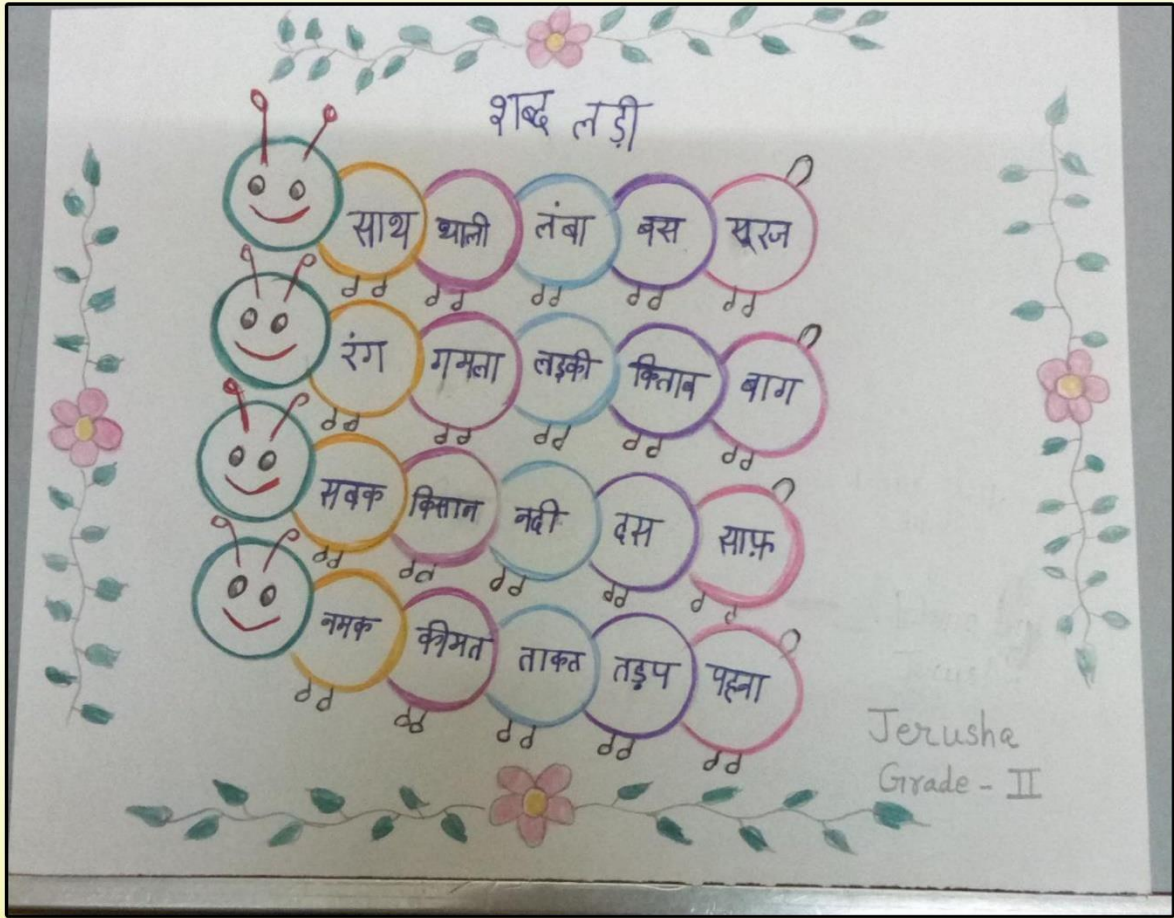 शब्द लड़ी
साथ थाली लंबा बस सूरज
रंग गमला लड़की किताब बाग
सबक किसान नदी दस साफ़
नमक कीमत ताकत तड़प पहना
Jerusha
Grade - II